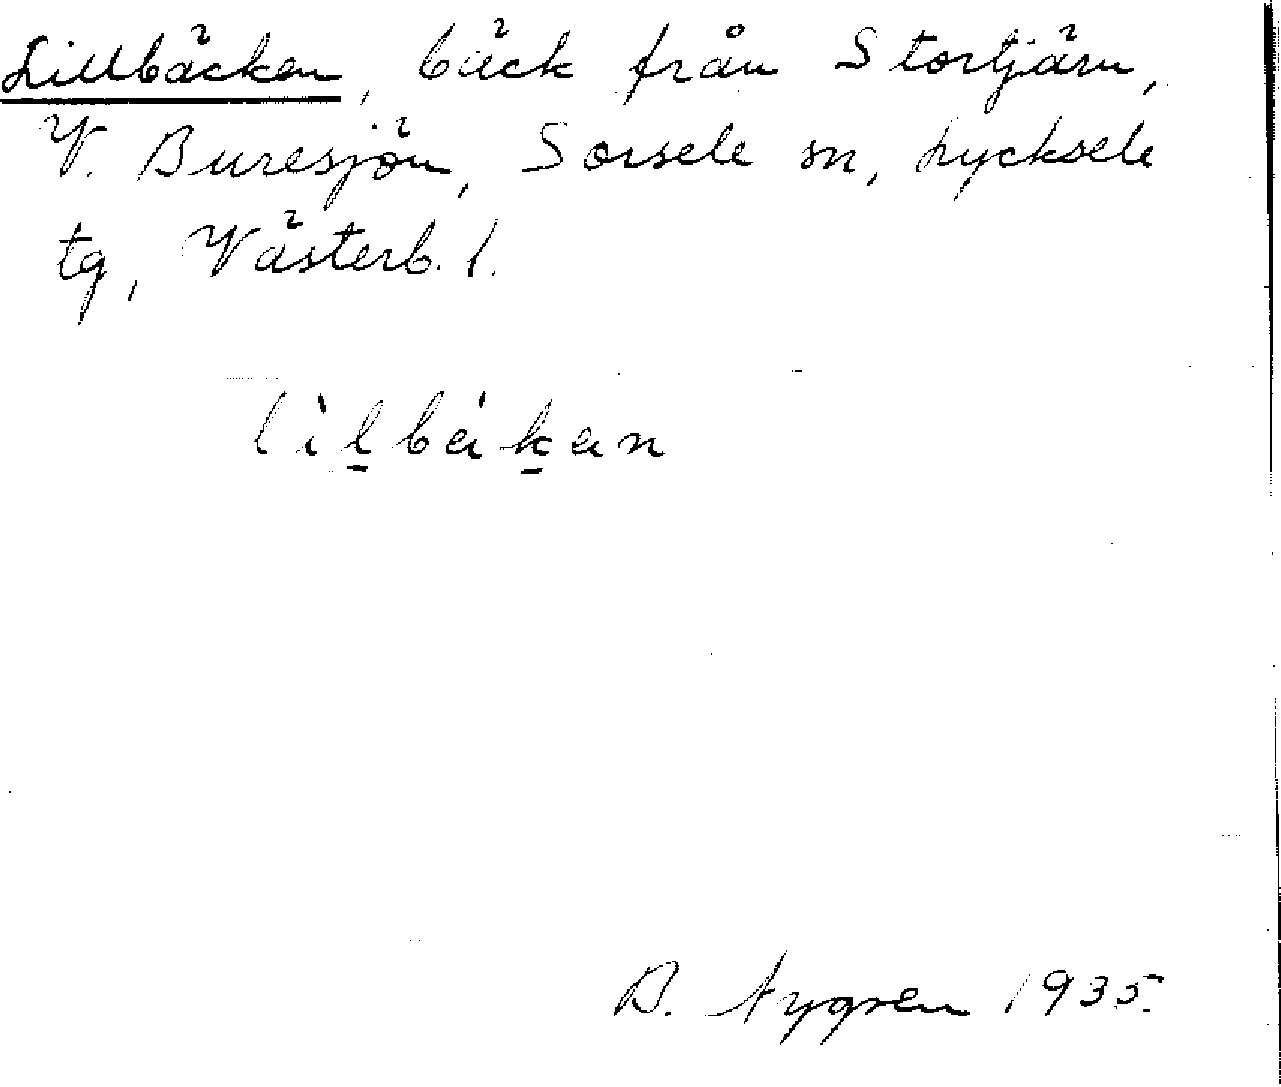 Lillbäcken, bäck från Stortjärn,
V. Buresjön, Sorsele sn, Lycksele
tg, Västerb. l.
lìl̲bák̲an
B. Nygren 1935.